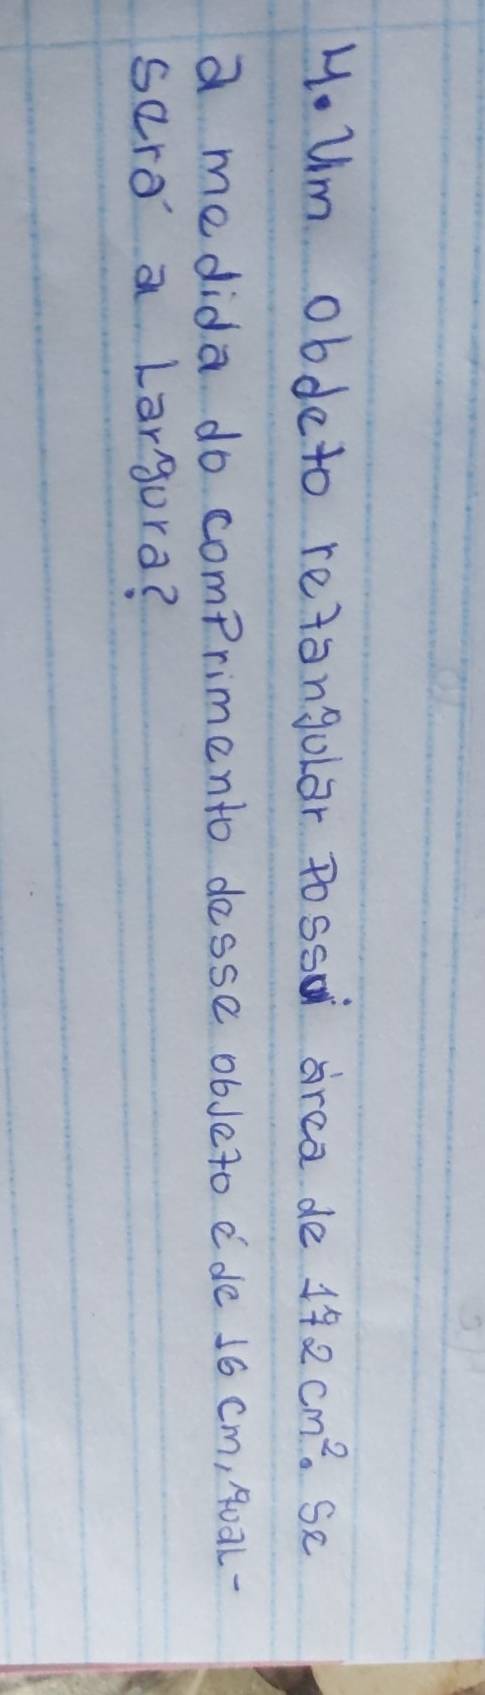 4. Um obdeto retangular possui área de 172 cm². Se
a medida do comprimento desse objeto é de 16 cm, qual-
será a largura?